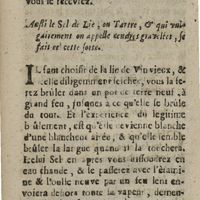 vous le recevrez.
Aussi le Sel de Lie, ou Tartre, & qui vul-
gairement on appelle cendres gravelées, se
fait en cette sorte.
IL faut choisir de la lie de Vin vieux, &
elle diligemment seichée, vous la fe-
rez brûler dans un pot de terre neuf, à
grand feu, jusques à ce qu'elle se brûle
du tout. Et l'experience du legitime
brûlement, est qu'elle devienne blanche
d'une blancheur azée, & qu'elle semble
brûler la langue quand il la touchera.
Icelui Sel en après vous dissoudrez en
eau chaude, & le passerez avec l'étami-
ne & l'ouïle neuve par un feu lent en-
voyera dehors toute la vapeur, demeu-